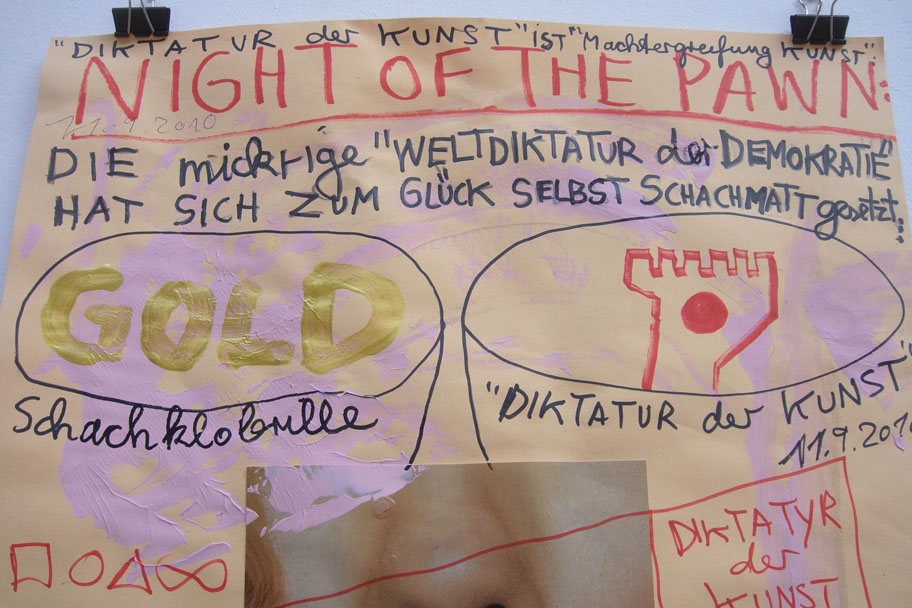 "DIKTATUR der KUNST" "iST" Machtergreifung KUNST".
NIGHT OF THE PAWN:
11.9.2010
DIE mickrige "WELTDIKTATUR der DEMOKRATIE"
HAT SICH ZUM GLÜCK SELBST SCHACHMATT gesetzt.
GOLD
Schachklobrille
"DIKTATUR der KUNST"
11.9.201
DIKTATYR
der
KUNST